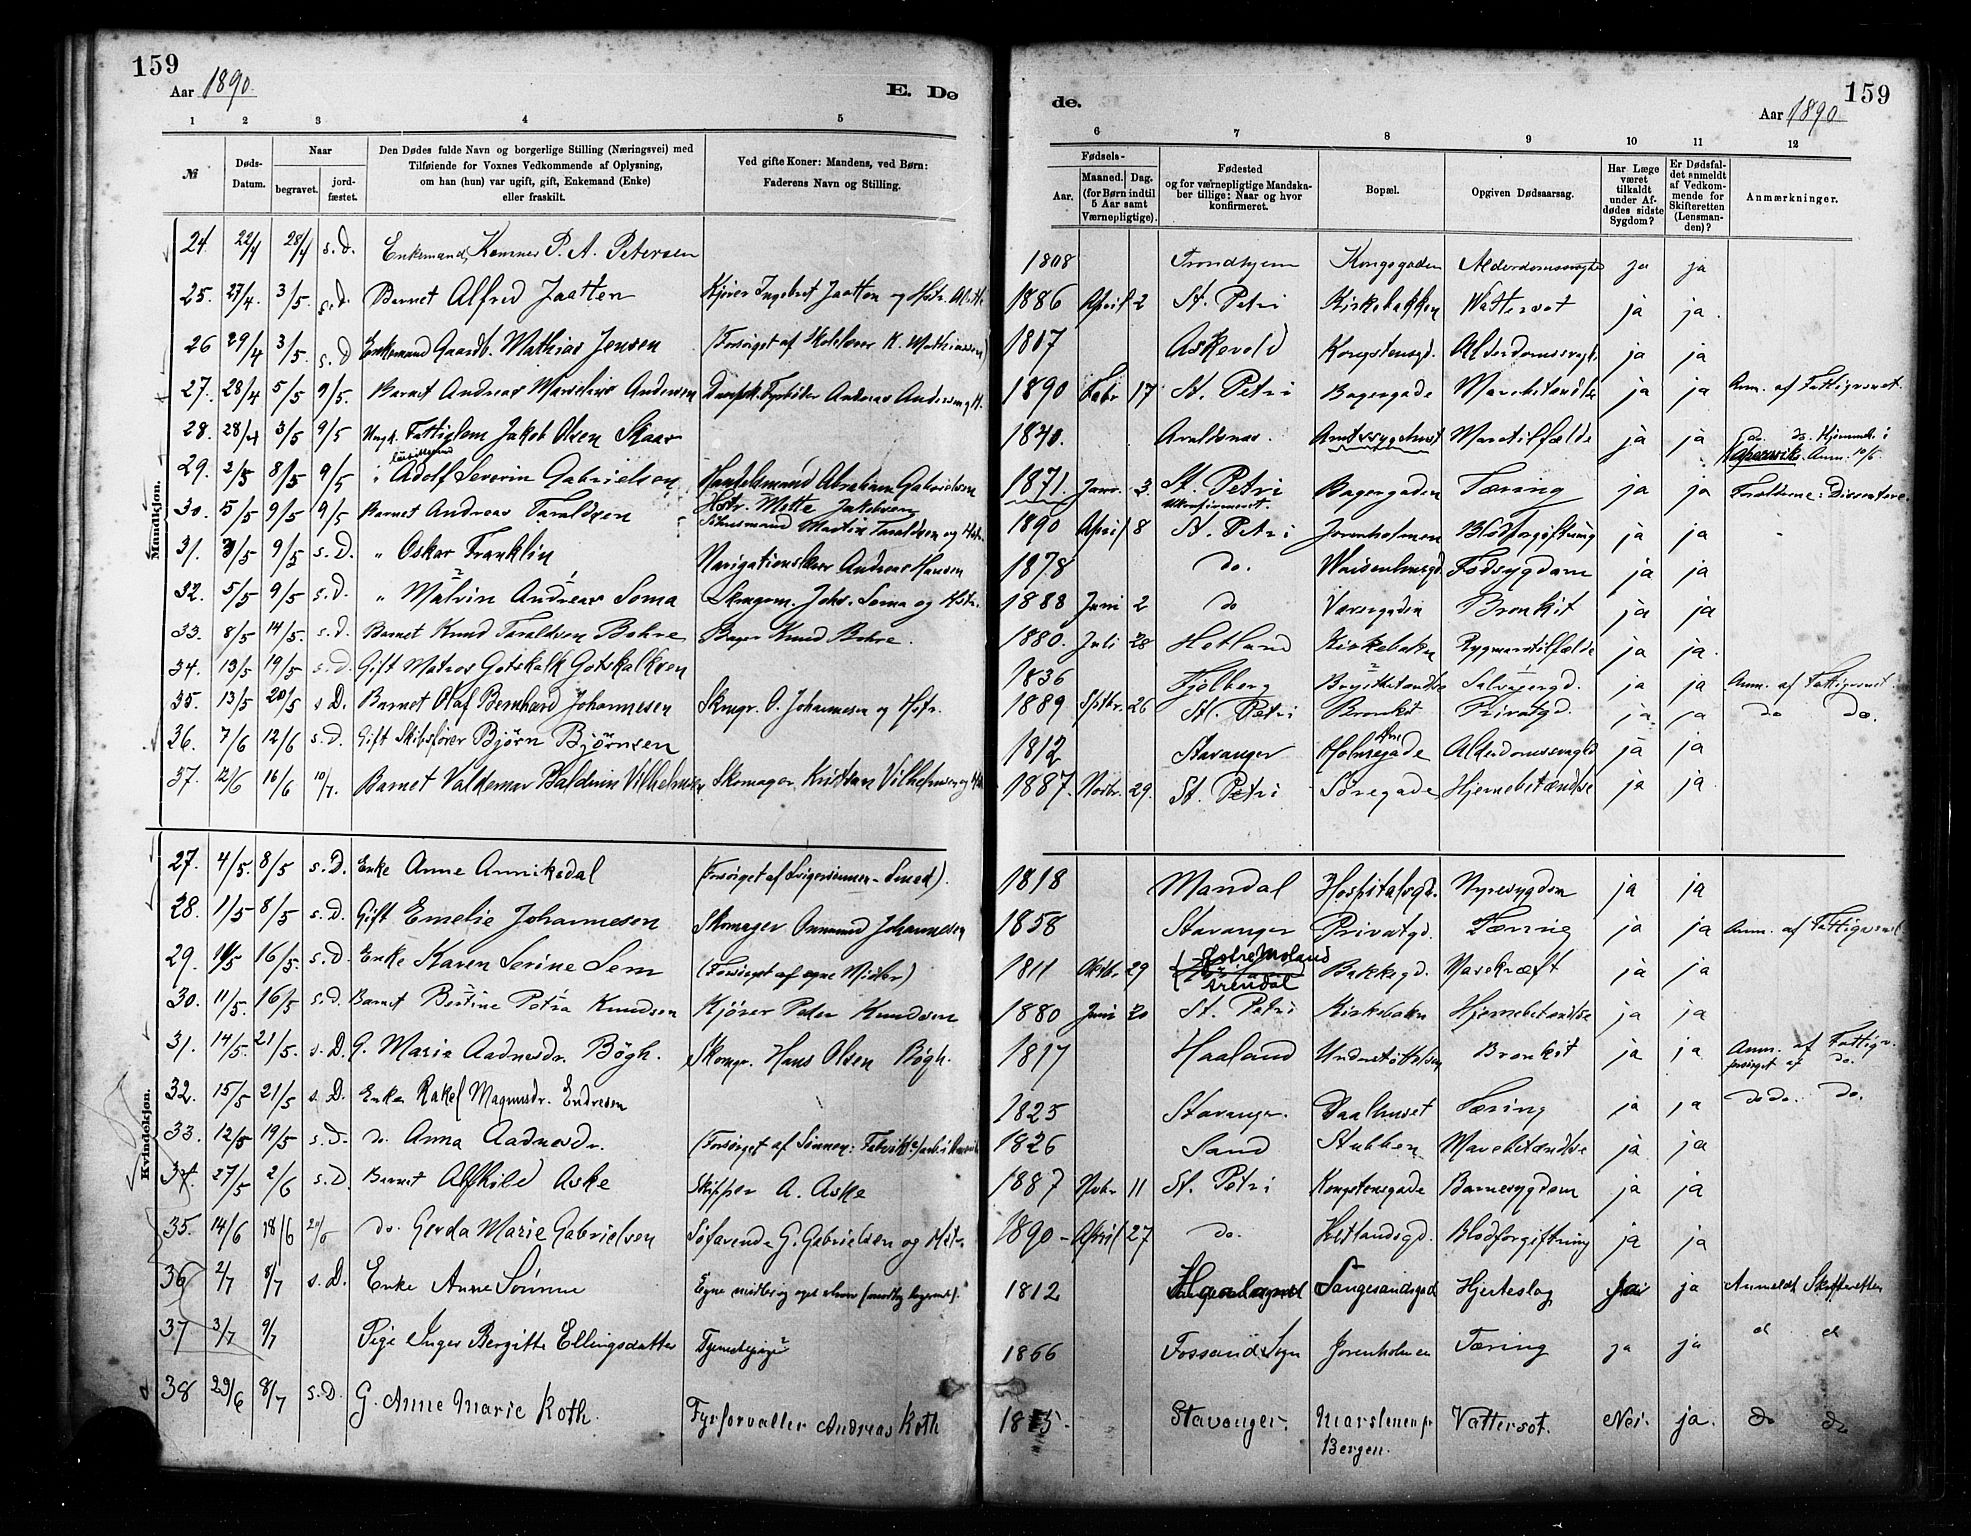 159
Aar 1890.
E. Dø
1 2 3 4 5
№
Døds-Datum.
Naar
begravet. jord-fæstet.
Den Dødes fulde Navn og borgerlige Stilling (Næringsvei) med
Tilføiende for Voxnes Vedkommende af Oplysning,
om han (hun) var ugift, gift, Enkemand (Enke)
eller fraskilt.
Ved gifte Koner: Mandens, ved Børn:
Faderens Navn og Stilling.
Mandkjøn.
24. 22/4 28/4 s.D. Enkemand, Kemner P. A. Petersen
25. 27/4. 3/5. s.D. Barnet Alfred Jaatten Kjører Ingebret Jaatten og Hstr.
26 29/4 3/5. s.D Enkemand Gaardb. Mathias Jensen (Forsørget af Skolelærer K. Mathiassen)
27. 28/4 5/5 9/5. Barnet Andreas Marselius Andersen Dampsk. Fyrbøder Andreas Andersen og H.
28. 28/4 3/5 9/5 Ungk. Fattiglem Jakob Olsen Skaar
29. 2/5 8/5 9/5 Adolf Severin Gabrielsen Handelsmand Abraham Gabrielsen
Hstr. Mette Jakobsen
30. 5/5 9/5 9/5 Barnet Andreas Taraldsen Martin Taraldsen og Hstr.
31. 3/5 9/5 s.D. " Oskar Franklin Navigationslærer Andreas Hansen
32. 5/5 9/5 s.D. " Malvin Andreas Soma Skmgm. Johs. Soma og Hstr.
33. 8/5 14/5. s.D. Barnet Knud Taraldsen Bohre Bager Knud Bohre.
34. 13/5 19/5 s.D. Gift Matros Gotskalk Gotskalksen
35. 13/5 20/5 s.D. Barnet Olaf Bernhard Johannesen Skmgr. O. Johannesen og Hstr.
36. 7/6 12/6 s.D. Gift Skibsfører Bjørn Bjørnsen
37. 12/6 16/6 10/7. Barnet Valdemar Balduin Vilhelmsen Skomager Kristian Vilhelmsen og H
Kvindekjøn.
27. 4/5. 8/5 s.D. Enke Anne Annikedal (Forsørget af Svigersønnen - Smed).
28. 1/5 8/5 s.D. Gift Emelie Johannesen Skomager Ommund Johannesen
29. 10/5 16/5. s.D. Enke Karen Serine Sem (Forsørget af egne Midler)
30. 11/5. 16/5 s.D. Barnet Bertine Petra Knudsen Kjører Peder Knudsen
31. 14/5. 21/5. s.D. G. Maria Aadnesdr. Bøgh. Skomgr. Hans Olsen Bøgh.
32. 15/5 21/5 s.D. Enke Rakel Magnusdr. Endresen
33. 12/5 19/5 s.D. do. Anna Aadnesdr. (Forsørget af Sønnen:
34. 27/5 2/6 s.D. Barnet Alfhild Aske Skipper A. Aske
35. 14/6 18/6 do. Gerda Marie Gabrielsen Søfarende G. Gabrielsen og Hstr.
36 2/7 8/7 s.D. Enke Anne Sømme Egne midler og eget
37 3/7 9/7 Pige Inger Bergitte Ellingsdatter Tjenestepige
38 29/6 8/7 s.D. G. Anne Marie Koth. Fyrforvalter Andreas Koth
de.
159
Aar 1890
6 7 8 9 10 11 12
Fødsels-
Aar.
Maaned. Dag.
(for Børn indtil
5 Aar samt
Værnepligtige).
Fødested
og for værnepligtige Mandska-
ber tillige: Naar og hvor
konfirmeret.
Bopæl.
Opgiven Dødsaarsag.
Har Læge
været
tilkaldt
under Af-
dødes sidste
Sygdom?
Er Dødsfal-
det anmeldt
af Vedkom-
mende for
Skifteretten
(Lensman-
den)?
Anmærkninger.
1808 Trondhjem Kongsgaden Alderdomssvaghed ja ja
1886 April 2 St. Petri Kirkebakken Vattersot ja ja.
1817 Askevold Kongstensgd. Alderdomssvagh. ja ja
1890 Febr 17 St. Petri Bagergade Mavebetændelse ja ja Anm. af Fattigvæsnet.
1840. Avaldsnæs. Amtssygehuset Mavetilfælde ja ja do. do. Hjemmeh. i
Anm. 10/6.
1871. Janr. 3. St. Petri Bagergaden Tæring ja ja Forældrene: Dissentere.
1890 April 8 St. Petri Jorenholmen Blodforgiftning ja ja
1878 do. Waisenhusgd. Fodsygdom ja ja
1888 Juni 2 do Værsgaden Bronkit ja ja
1880. Juli 28 Hetland Kirkebakn Rygmarvstilfælde ja ja.
1836 Fjølberg Brystbetændelse Salvagergd. ja ja Anm. af Fattigvæsnet
1889 Sptbr. 26 St. Petri Bronkit Privatgd. ja ja do do.
1812 Stavanger Holmegade Alderdomssvaghed ja ja
1887. Novbr. 29. St. Petri Søregade Hjernebetændelse ja ja
1818 Mandal Hospitalsgd. Nyresygdom ja ja
1858 Stavanger Privatgd. Tæring ja ja Anm. af Fattigvæsnet
1811 Oktbr. 29 Østre Moland
Arendal Bakkegd. Mavekræft ja ja
1880 Juni 20 St. Petri Kirkebakn Hjernebetændelse ja ja
1817 Haaland Bronkit ja ja Anm. af Fattigv.
forsørget af do.
1825 Stavanger. Daalhuset Tæring ja ja do do. do.
1826 Sand Stubben Mavebetændelse ja ja
1887 Novbr 11 St. Petri Kongstensgade Barnesygdom ja ja
1890 - April 27 do. Hetlandsgd. Blodforgiftning ja ja
1812 Langesandsgad Hjerteslag ja ja Anmeldt Skifteretten
1866 Fossand Sogn Jorenholmen Tæring ja ja d d
1815. Stavanger. Marstenen fr
Bergen. Vattersot. Nei. ja. do do